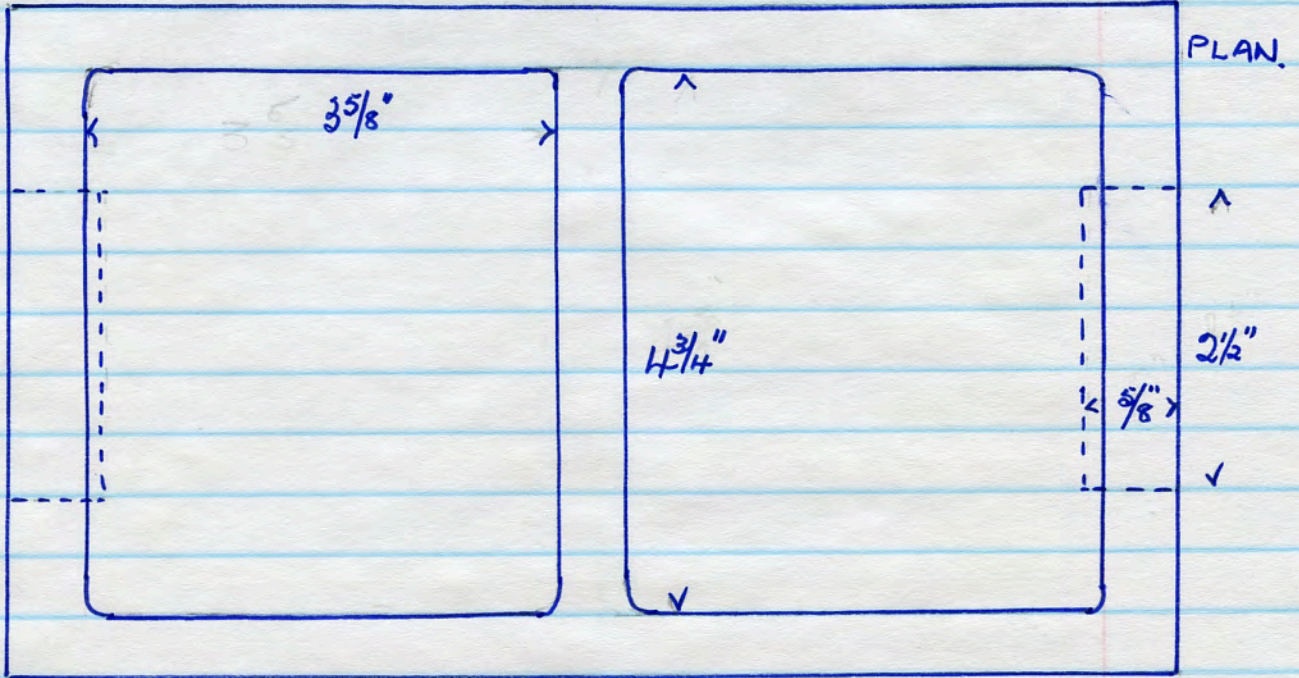 PLAN.
3 5/8"
4 3/4"
2 1/2"
5/8"